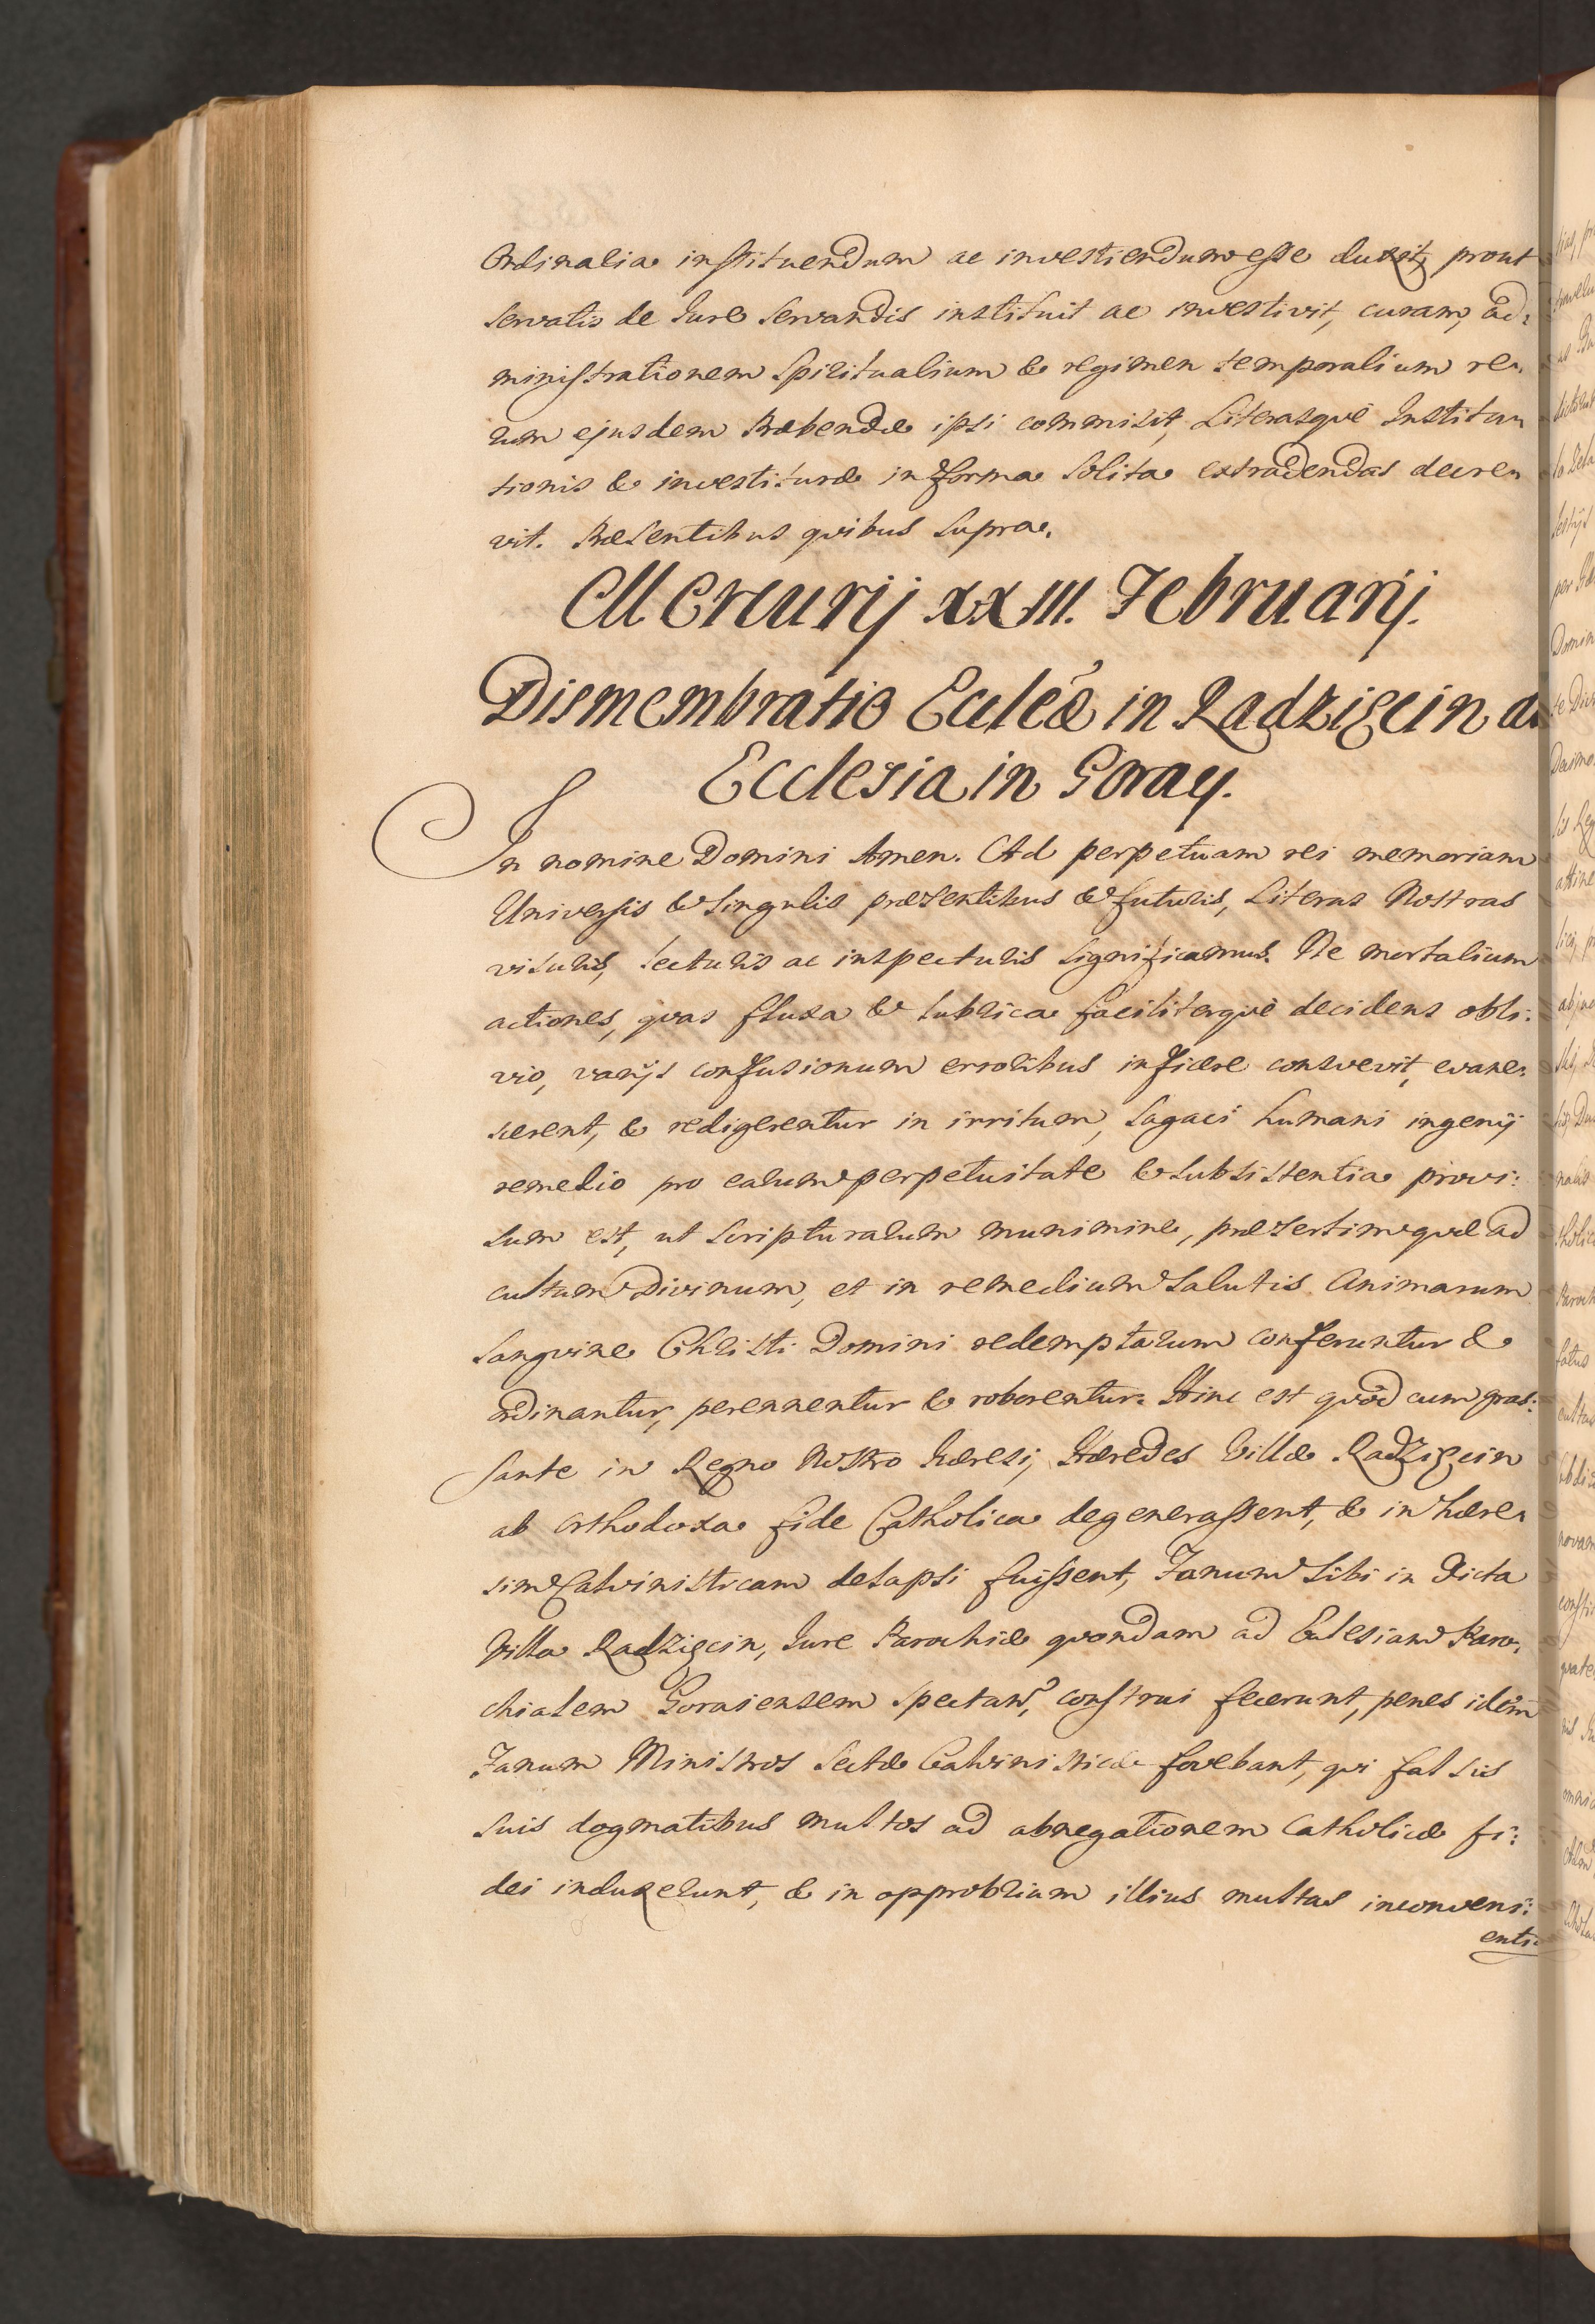 Ordinaria instituendum ac investiendum esse duxit, prout
servatis de Jure servandis instituit ac investivit, curam, ad:
ministrationem Spiritualium & regimen temporalium re:
rum ejusdem Præbendæ ipsi commisit, Literasque Institu:
tionis & investituræ in forma solita extradendas decre:
vit. Præsentibus quibus supra.
Mercurij XXIII. Februarij.
Dismembratio Ecclĕæ in Radzięcin a
Ecclesia in Goray.
In nomine Domini Amen. Ad perpetuam rei memoriam
Universis & singulis præsentibus & futuris, Literas Nostras
visuris, lecturis ac inspecturis significamus. Ne mortalium
actiones, quas fluxa & lubrica faciliterque decidens obli:
vio, varijs confusionum erroribus inficere consvevit, evane:
scerent, & redigerentur in irritum, sagaci humani ingenij
remedio pro earum perpetuitate & subsistentia provi:
sum est, ut scripturarum munimine, præsertim quæ ad
cultum Divinum, et in remedium salutis Animarum
sangvine Christi Domini redemptarum conferuntur &
ordinantur, perennentur & roborentur. Hinc est quod cum gras:
sante in Regno Nostro hæresi, Hæredes Villæ Radzięcin
ab orthodoxa fide Catholica degenerassent, & in hære:
sim Calvinisticam delapsi fuissent, Fanum sibi in dicta
Villa Radzięcin, Jure Parochiæ quondam ad Eclesiam Paro:
chialem Goraiensem spectans, construi fecerunt, penes idem
Fanum Ministros Sectæ Calvinisticæ fovebant, qui falsis
suis dogmatibus multos ad abnegationem Catholicæ fi:
dei induxerunt, & in opprobrium illius multas inconveni:
enti